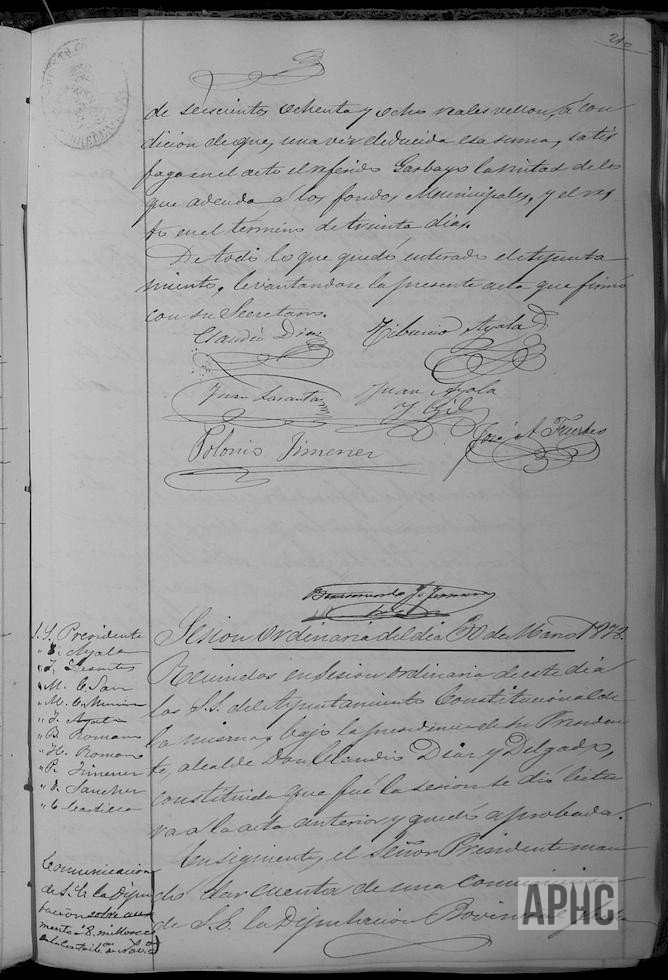 210
de seiscientos ochenta y ocho reales vellon, á con
dicion de que, una vez deducida esa suma, satis
faga en el acto el referido Garbayo la mitad de lo
que adeuda á los fondos Municipales, y el res
to en el término de treinta dias.
De todo lo que quedó enterado el Ayunta
miento, levantandose la presente acta que firmó
con su Secretario.
Claudio Diaz
Tiburcio Ayala
Juan Lasanta
Juan Ayala
y Gil
Polonio Jimenez
José A. Fuertes
Sesion ordinaria del dia 30 de Marzo 1878.
S. S. Presidente
" T. Ayala
" J. Lasanta
" M. C. San
" M. C.
" J. Ayala
" B. Romano
" H. Romano
" P. Jimenez
" J. Sanchez
" C.
Reunidos en sesion ordinaria de este dia
los S.S. del Ayuntamiento Constitucional de
la misma, bajo la presidencia de su Presiden
te, alcalde Don Claudio Diaz y Delgado,
constituida que fué la sesion se dió lectu
ra a la acta anterior y quedó aprobada.
En seguimiento, el señor Presidente man
dó dar cuenta de una comunicacion
de S. E. la Diputacion Provincial
Comunicacion
de S. E. la Dipu
tacion sobre
mento
APHC